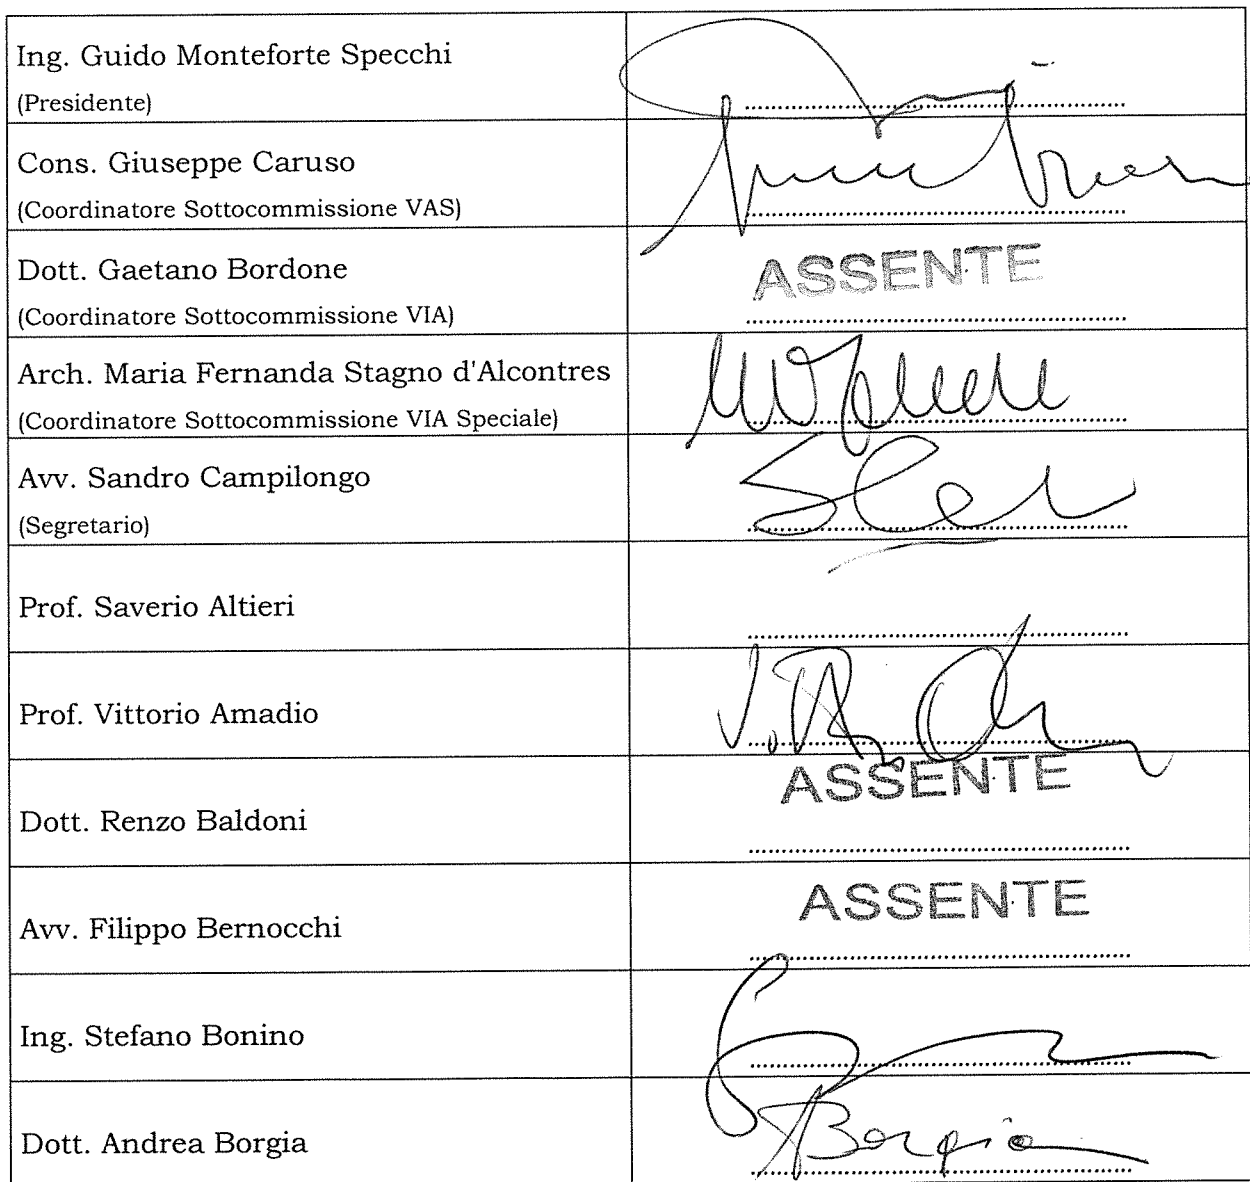 Ing. Guido Monteforte Specchi
(Presidente)
Cons. Giuseppe Caruso
(Coordinatore Sottocommissione VAS)
Dott. Gaetano Bordone
(Coordinatore Sottocommissione VIA)
ASSENTE
Arch. Maria Fernanda Stagno d'Alcontres
(Coordinatore Sottocommissione VIA Speciale)
Avv. Sandro Campilongo
(Segretario)
Prof. Saverio Altieri
Prof. Vittorio Amadio
Dott. Renzo Baldoni
ASSENTE
Avv. Filippo Bernocchi
ASSENTE
Ing. Stefano Bonino
Dott. Andrea Borgia
Borgia